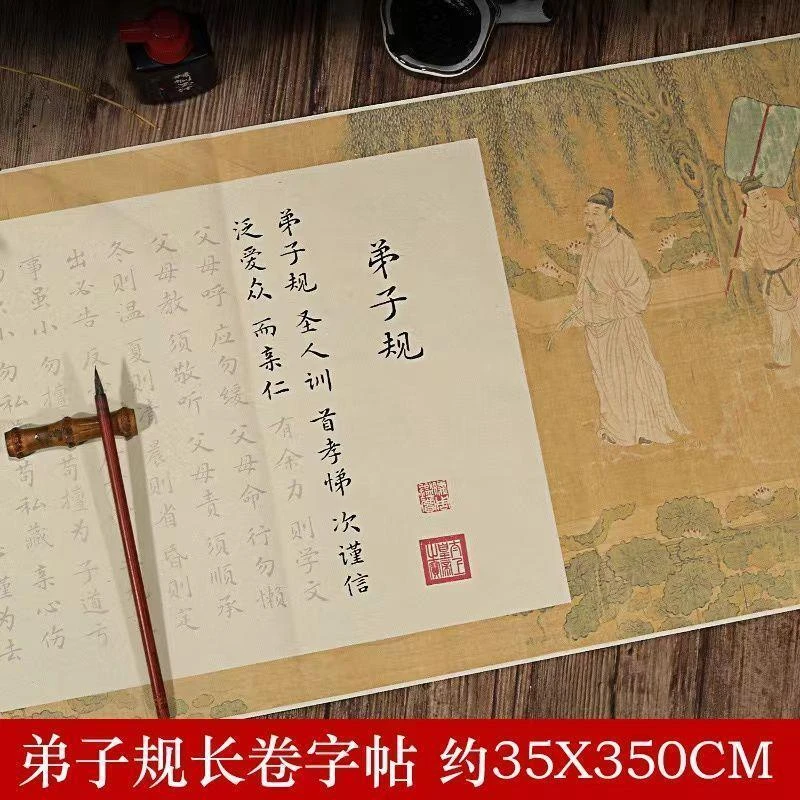 弟子规
弟子规 圣人训 首孝悌 次谨信
泛爱众 而亲仁 有余力 则学文
父母呼 应勿缓 父母命 行勿懒
父母教 须敬听 父母责 须顺承
冬则温 夏则 晨则省 昏则定
出必告 反
事虽小 勿擅 苟擅为 子道亏
小 勿私 苟私藏 亲心伤
弟子规长卷字帖 约35X350CM